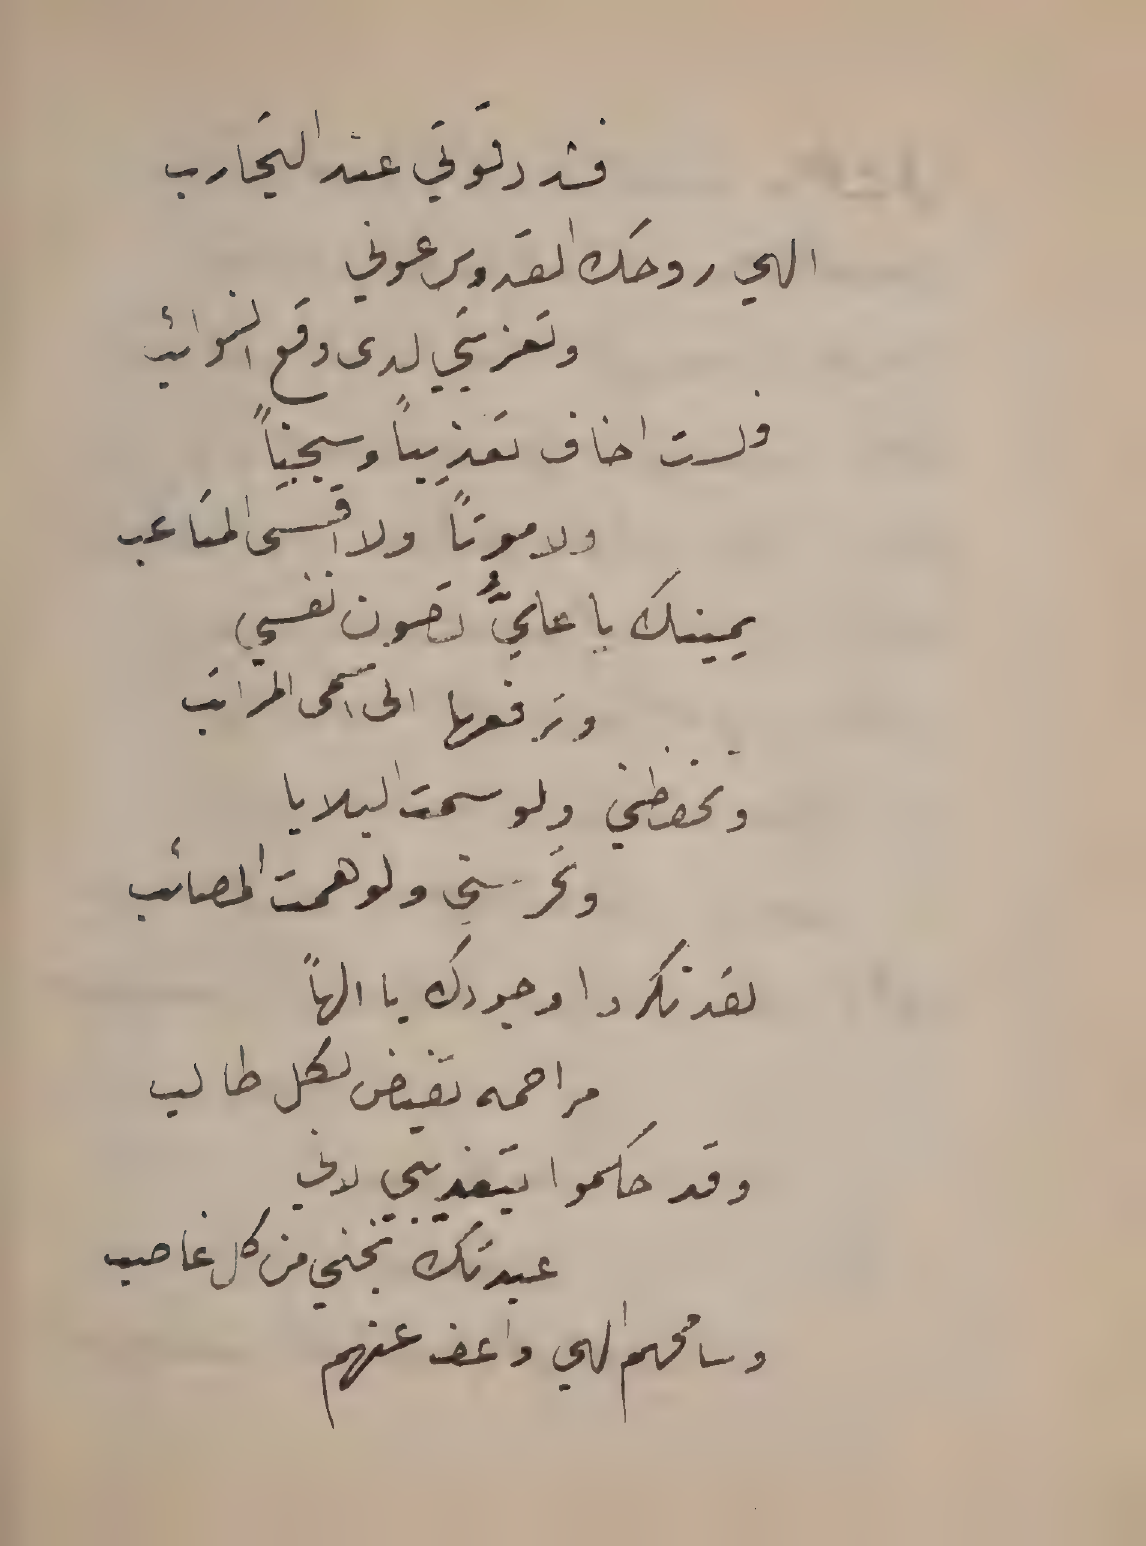 فشدد قوتي عند التجارب
الهي روحك القدوس عوني
وتعزيتي لدى وقع النوائب
فلست اخاف تعذيباً وسجناً
ولا موتاً ولا اقسى المتاعب
يمينك يا عليُّ تصون نفسي
وترفعها الى اسمى المراتب
وتحفظني ولو سمت البلايا
وتحرسني ولو همت المصائب
لقد نكروا وجودك يا الهاً
مراحمه تفيض لكل طالب
وقد حكموا بتعذيبي لاني
عبدتك نجني من كل غاصب
وسامحهم الهي واعف عنهم